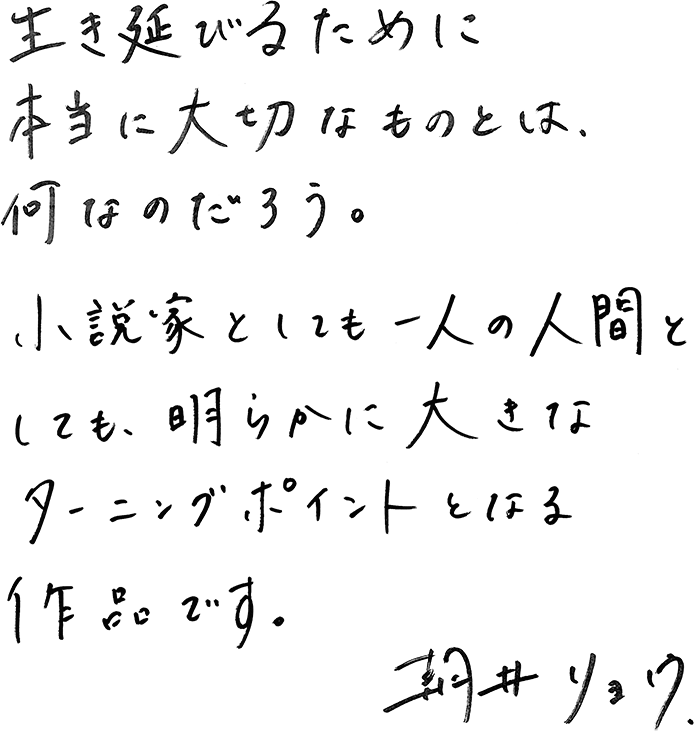 生き延びるために
本当に大切なものとは、
何なのだろう。
小説家としても一人の人間と
しても、明らかに大きな
ターニングポイントとなる
作品です。
朝井リョウ.